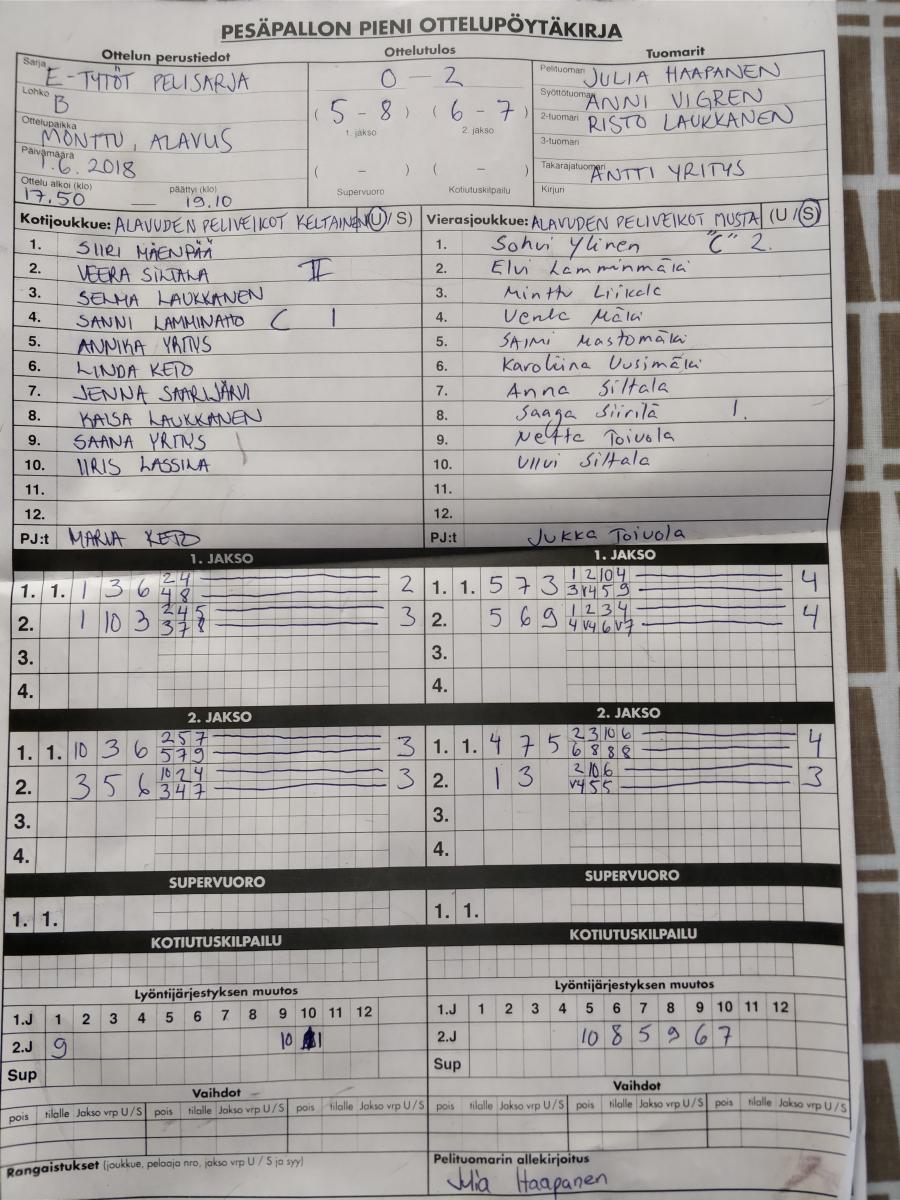 PESÄPALLON PIENI OTTELUPÖYTÄKIRJA
Ottelun perustiedot
Ottelutulos
Tuomarit
Sarja E-TYTÖT PELISARJA
0 - 2
Pelituomari JULIA HAAPANEN
Lohko B
( 5 - 8 ) ( 6 - 7 )
Syöttötuomari ANNI VIGREN
1. jakso 2. jakso
2-tuomari RISTO LAUKKANEN
Ottelupaikka MONTTU, ALAVUS
3-tuomari
Päivämäärä 1.6.2018
( - ) ( - )
Takarajatuomari ANTTI YRITYS
Ottelu alkoi (klo) päättyi (klo)
17.50 — 19.10
Supervuoro Kotiutuskilpailu
Kirjuri
Kotijoukkue: ALAVUDEN PELIVEIKOT KELTAINEN (U / S)
Vierasjoukkue: ALAVUDEN PELIVEIKOT MUSTA (U / S)
1. SIIRI MÄENPÄÄ
1. Sohvi Ylinen "C" 2.
2. VEERA SILTALA II
2. Elvi Lamminmäki
3. SELMA LAUKKANEN
3. Minttu Liikala
4. SANNI LAMMINAHO C 1
4. Venla Mäki
5. ANNIKA YRITYS
5. SAIMI Mastomäki
6. LINDA KETO
6. Karoliina Uusimäki
7. JENNA SAARIJÄRVI
7. Anna Siltala
8. KAISA LAUKKANEN
8. Saaga Siirilä 1.
9. SAANA YRITYS
9. Netta Toivola
10. IIRIS LASSILA
10. Vilvi Siltala
11.
11.
12.
12.
PJ:t MARJA KETO
PJ:t Jukka Toivola
1. JAKSO
1. JAKSO
1. 1. 1 3 6 2 4 2
4 8
1. 1. 5 7 3 1 2 10 4 4
3 V4 5 9
2. 1 10 3 2 4 5 3
3 7 8
2. 5 6 9 1 2 3 4 4
4 V4 6 V7
3.
3.
4.
4.
2. JAKSO
2. JAKSO
1. 1. 10 3 6 2 5 7 3
5 7 9
1. 1. 4 7 5 2 3 10 6 4
6 8 8 8
2. 3 5 6 10 2 4 3
3 4 7
2. 1 3 2 10 6 3
V4 5 5
3.
3.
4.
4.
SUPERVUORO
SUPERVUORO
1. 1.
1. 1.
KOTIUTUSKILPAILU
KOTIUTUSKILPAILU
Lyöntijärjestyksen muutos
Lyöntijärjestyksen muutos
1.J 1 2 3 4 5 6 7 8 9 10 11 12
1.J 1 2 3 4 5 6 7 8 9 10 11 12
2.J 9 10 1
2.J 10 8 5 9 6 7
Sup
Sup
Vaihdot
Vaihdot
pois tilalle Jakso vrp U / S pois tilalle Jakso vrp U / S pois tilalle Jakso vrp U / S
pois tilalle Jakso vrp U / S pois tilalle Jakso vrp U / S pois tilalle Jakso vrp U / S
Rangaistukset (joukkue, pelaaja nro, jakso vrp U / S ja syy)
Pelituomarin allekirjoitus
Julia Haapanen